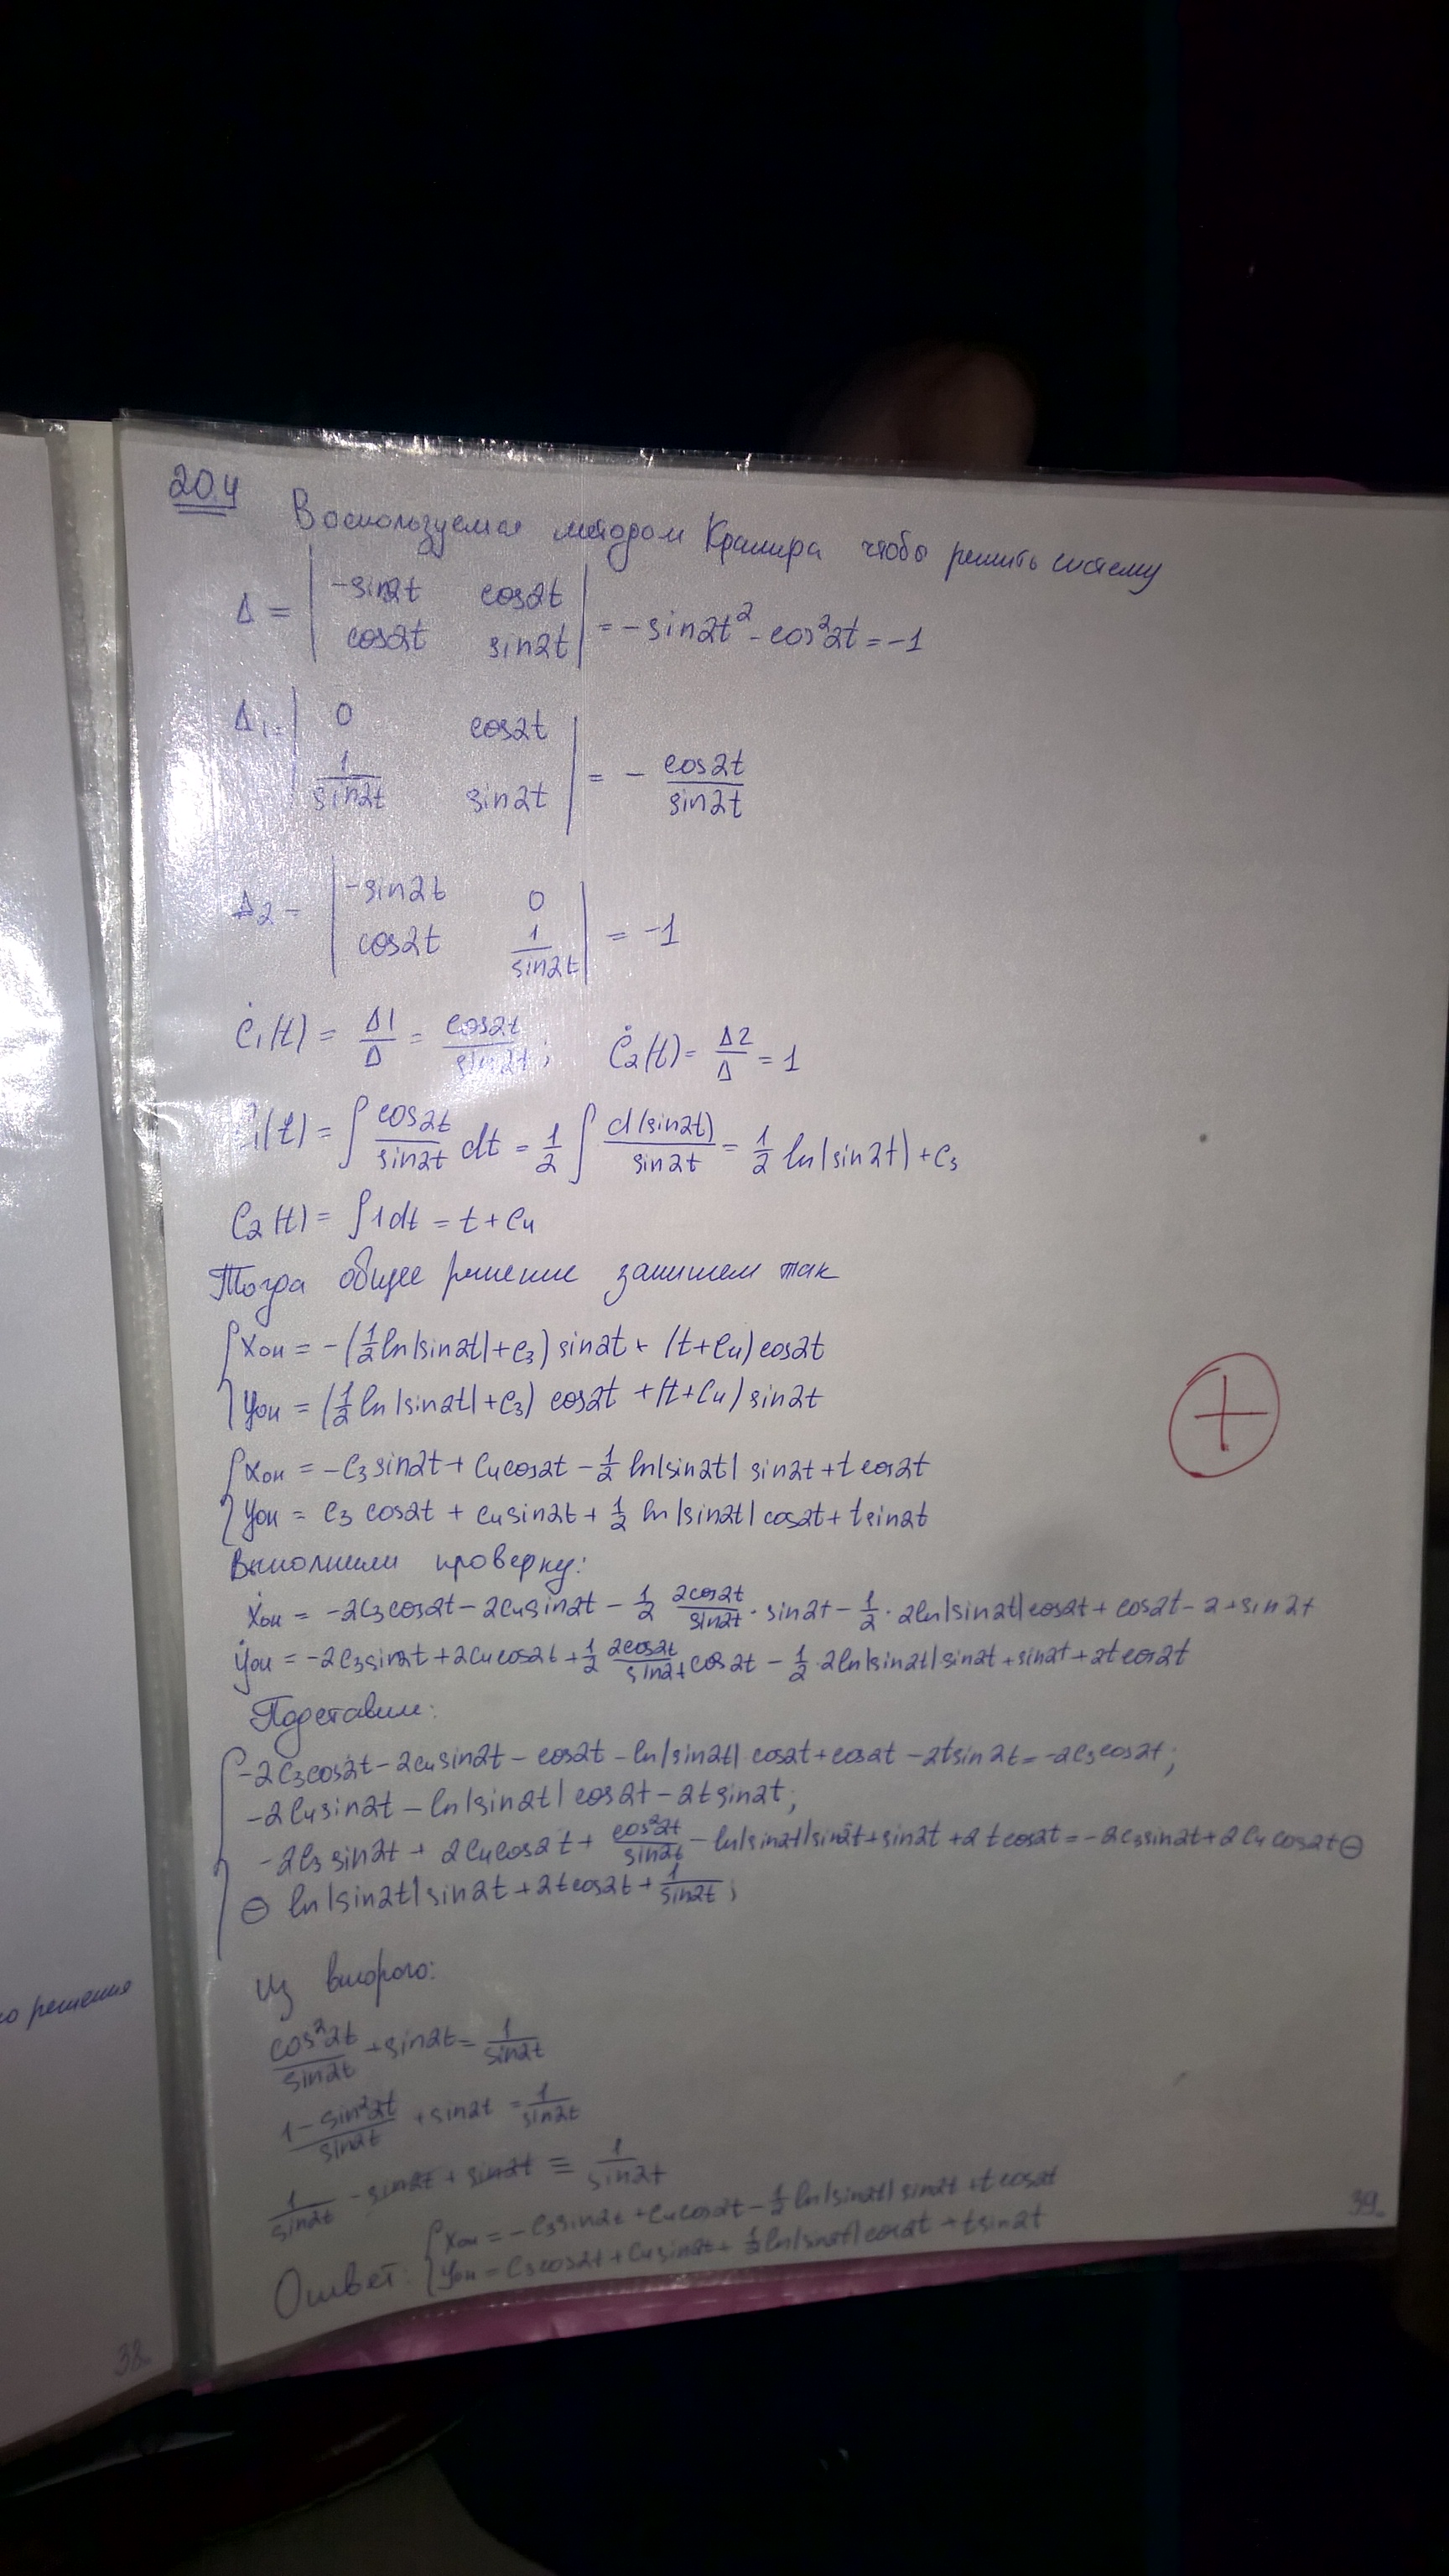 20.4
Воспользуемся методом Крамера чтобы решить систему
Δ = | -sin2t cos2t |
| cos2t sin2t | = -sin2t² - cos²2t = -1
Δ1 = | 0 cos2t |
| 1/sin2t sin2t | = - cos2t/sin2t
Δ2 = | -sin2t 0 |
| cos2t 1/sin2t | = -1
Ċ₁(t) = Δ1/Δ = cos2t/sin2t; Ċ₂(t) = Δ2/Δ = 1
C₁(t) = ∫ cos2t/sin2t dt = 1/2 ∫ d(sin2t)/sin2t = 1/2 ln|sin2t| + C₃
C₂(t) = ∫1dt = t + C₄
Тогда общее решение запишем так
{ Xон = -(1/2 ln|sin2t| + C₃) sin2t + (t + C₄) cos2t
Yон = (1/2 ln|sin2t| + C₃) cos2t + (t + C₄) sin2t
{ Xон = -C₃ sin2t + C₄ cos2t - 1/2 ln|sin2t| sin2t + t cos2t
Yон = C₃ cos2t + C₄ sin2t + 1/2 ln|sin2t| cos2t + t sin2t
Выполним проверку:
Ẋон = -2C₃cos2t - 2C₄sin2t - 1/2 2cos2t/sin2t · sin2t - 1/2 · 2ln|sin2t|cos2t + cos2t - 2tsin2t
Ẏон = -2C₃sin2t + 2C₄cos2t + 1/2 2cos2t/sin2t cos2t - 1/2 · 2ln|sin2t|sin2t + sin2t + 2t cos2t
Подставим:
{ -2C₃cos2t - 2C₄sin2t - cos2t - ln|sin2t| cos2t + cos2t - 2tsin2t = -2C₃cos2t;
-2C₄sin2t - ln|sin2t| cos2t - 2t sin2t;
-2C₃ sin2t + 2C₄cos2t + cos²2t/sin2t - ln|sin2t|sin2t + sin2t + 2tcos2t = -2C₃sin2t + 2C₄cos2t ⊖
⊖ ln|sin2t|sin2t + 2tcos2t + 1/sin2t;
Из второго:
cos²2t/sin2t + sin2t = 1/sin2t
1-sin²2t/sin2t + sin2t = 1/sin2t
1/sin2t - sin2t + sin2t ≡ 1/sin2t
Ответ: { Xон = -C₃sin2t + C₄cos2t - 1/2 ln|sin2t| sin2t + t cos2t
Yон = C₃cos2t + C₄sin2t + 1/2 ln|sin2t|cos2t + tsin2t
+
39.
решение
38.